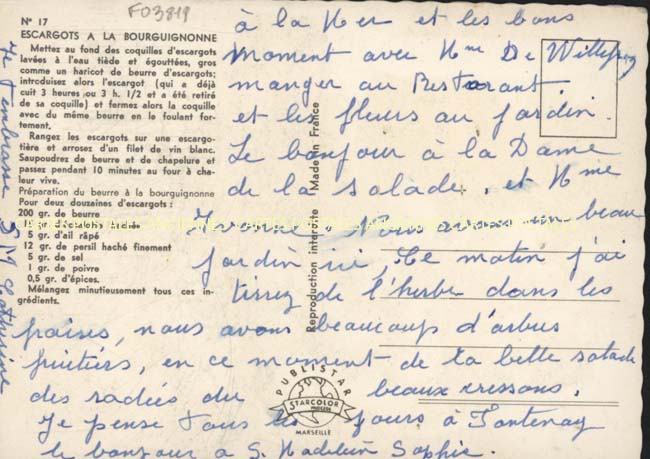 F03819
N° 17
ESCARGOTS A LA BOURGUIGNONNE
Mettez au fond des coquilles d'escargots
lavées à l'eau tiède et égouttées, gros
comme un haricot de beurre d'escargots;
introduisez alors l'escargot (qui a déjà
cuit 3 heures ou 3 h. 1/2 et a été retiré
de sa coquille) et fermez alors la coquille
avec du même beurre en le foulant for-
tement.
Rangez les escargots sur une escargo-
tière et arrosez d'un filet de vin blanc.
Saupoudrez de beurre et de chapelure et
passez pendant 10 minutes au four à cha-
leur vive.
Préparation du beurre à la bourguignonne
Pour deux douzaines d'escargots :
200 gr. de beurre
d'échalote hachée
5 gr. d'ail râpé
12 gr. de persil haché finement
5 gr. de sel
1 gr. de poivre
0,5 gr. d'épices.
Mélangez minutieusement tous ces in-
grédients.
à la Mer et les bons
moment avec Mme De
manger au Restorant
et les fleurs au jardin.
Le bonjour à la Dame
de la salade. et Mme
Nous avons un beau
jardin ici, Ce matin j'ai
tirrez de l'herbe dans les
fraises, nous avons beaucoup d'arbus
fruitiers, en ce moment de la belle salade
des radies du beaux cressons.
Je pense tous les jours à Fontenay
le bonjour à S. Madelein Sophie.
Je t'embrasse S M Catherine
Reproduction interdite Made in France
PUBLISTAR
STARCOLOR
MARSEILLE